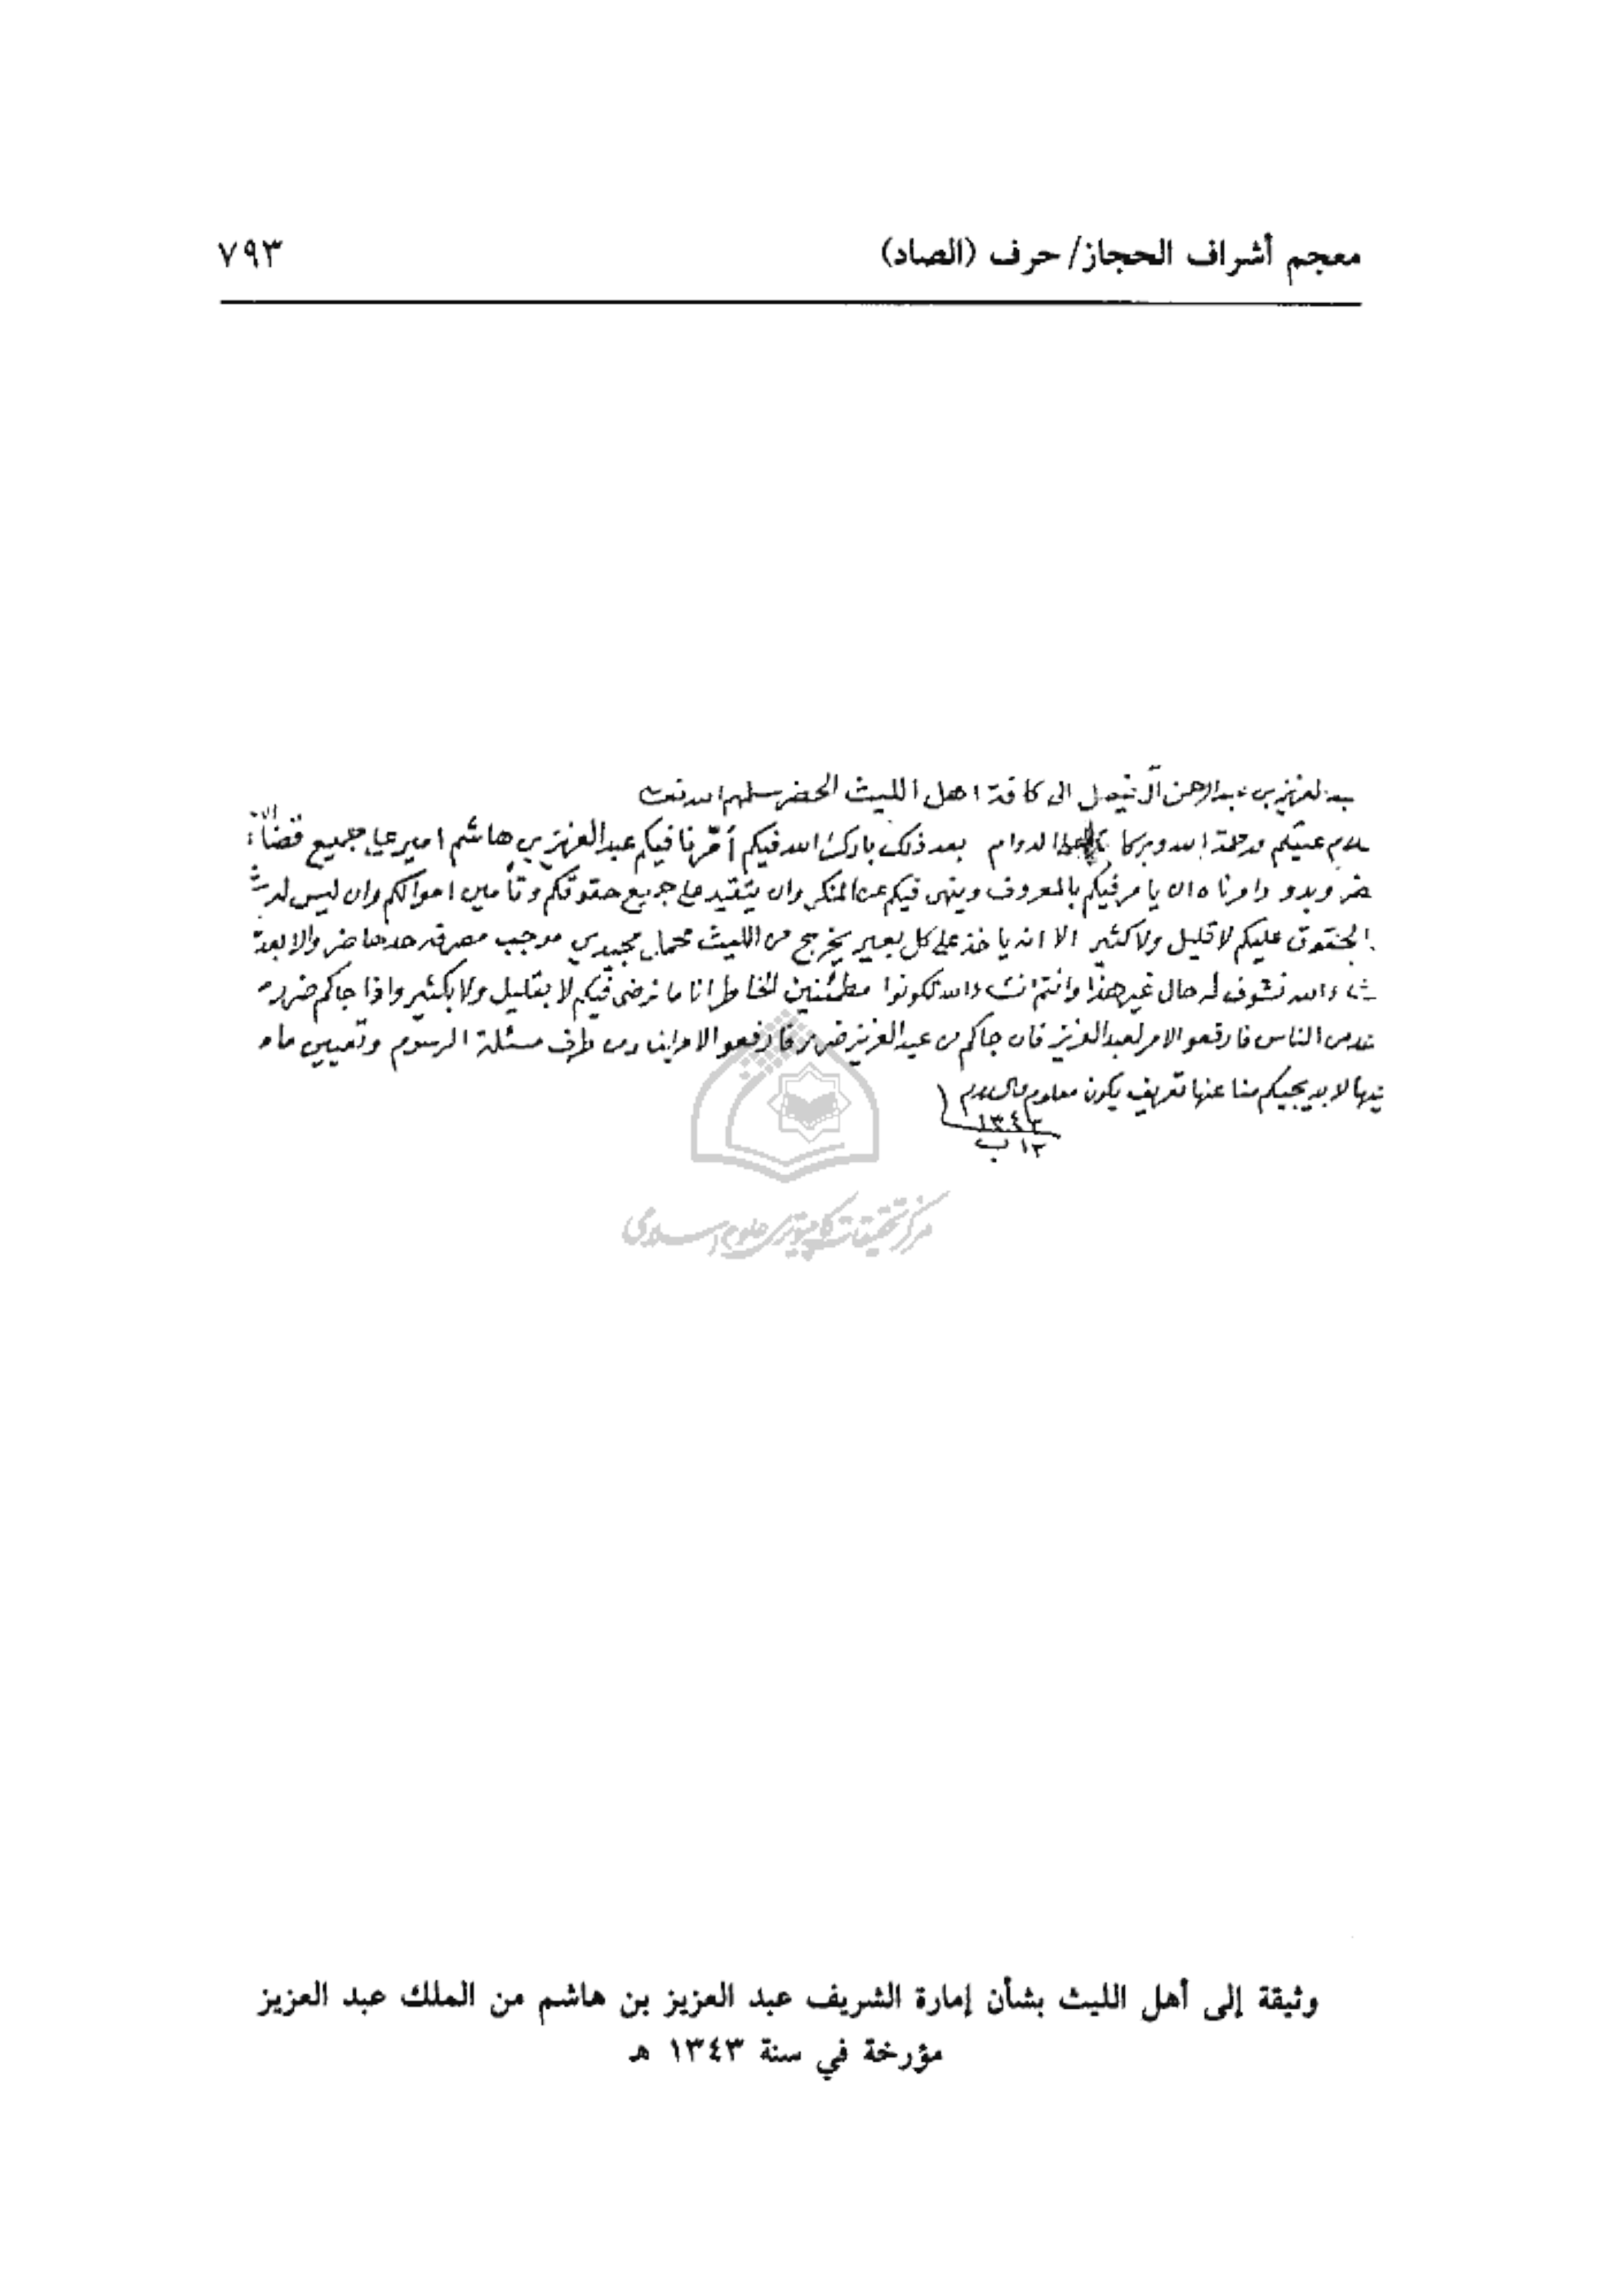 معجم أشراف الحجاز/ حرف (الصاد)
٧٩٣
عبد الرحمن آل فيصل الى كافة اهل الليث الحضر سلمهم الله
عليكم ورحمة الله وبركاته على الدوام بعد ذلك بارك الله فيكم أمّرنا فيكم عبد العزيز بن هاشم امير على جميع
وبدو وامرناه ان يامر فيكم بالمعروف وينهى فيكم عن المنكر وان يتقيد على جميع حقوقكم وتأمين اموالكم وان ليس له
الحقوق عليكم لا قليل ولا كثير الا انه ياخذ على كل بعير يخرج من الليث مجيدي موجب
الله نشوف له حال غير هذا وانتم انشاء الله تكونوا مطمئنين الخاطر انا ما نرضى فيكم لا بقليل ولا بكثير واذا جاكم ضرر
من الناس فارفعو الامر لعبد العزيز فان جاكم من عبد العزيز ضرر فارفعو الامر الينا ومن طرف مسئلة الرسوم وتعيين
لابد يجيكم منا عنها تعريف يكون معلوم والسلام
١٣٤٣
١٢ ب
مركز تحقيقات كامپيوترى علوم اسلامى
وثيقة إلى أهل الليث بشأن إمارة الشريف عبد العزيز بن هاشم من الملك عبد العزيز
مؤرخة في سنة ١٣٤٣ هـ